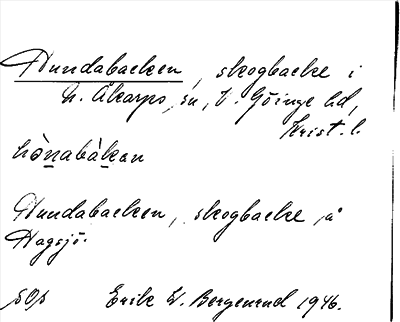 Hundabacken, skogbacke i
N. Åkarps sn, V. Göinge hd,
Krist. l.
hònabàkan
Hundabacken, skogbacke å
Hagsjö.
sop Erik W. Bergenrud 1946.